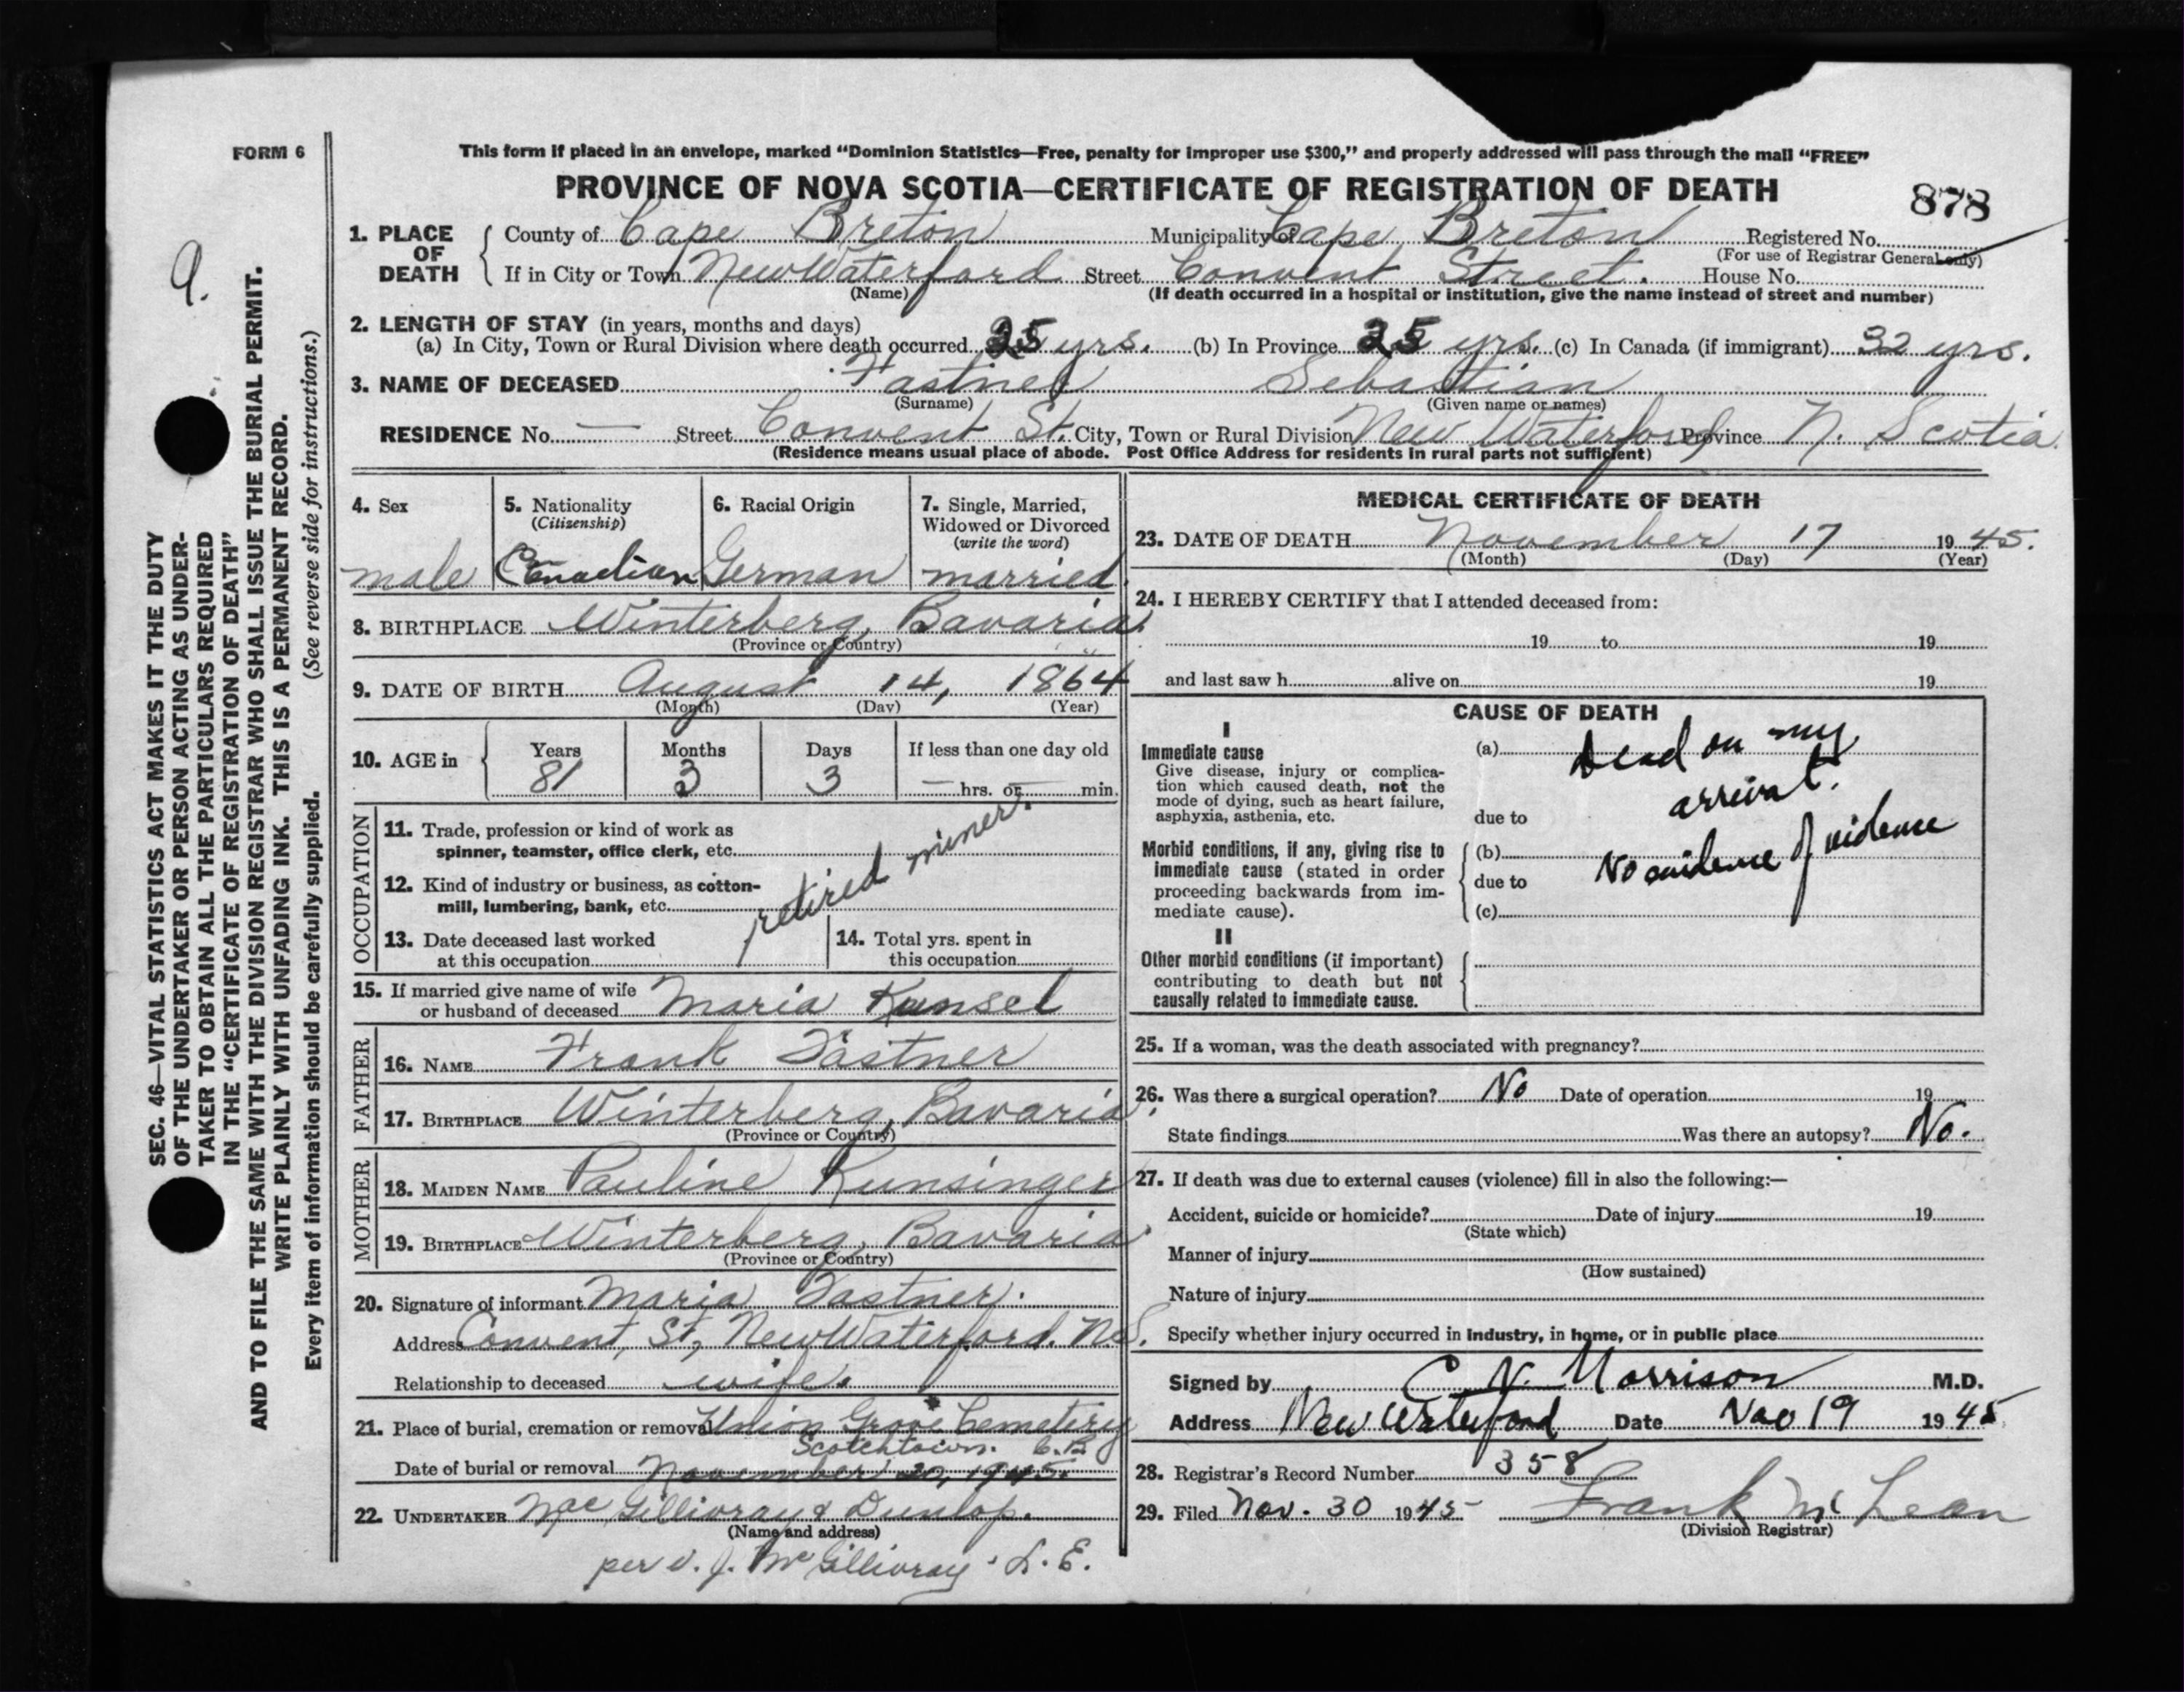 FORM 6
This form if placed in an envelope, marked “Dominion Statistics—Free, penalty for improper use $300,” and properly addressed will pass through the mail “FREE”
PROVINCE OF NOVA SCOTIA—CERTIFICATE OF REGISTRATION OF DEATH
878
1. PLACE OF DEATH
County of Cape Breton Municipality of Cape Breton Registered No.
(For use of Registrar General only)
If in City or Town New Waterford Street Convent Street. House No.
(Name) (If death occurred in a hospital or institution, give the name instead of street and number)
2. LENGTH OF STAY (in years, months and days)
(a) In City, Town or Rural Division where death occurred 25 yrs. (b) In Province 25 yrs. (c) In Canada (if immigrant) 32 yrs.
3. NAME OF DECEASED Fastner Sebastian
(Surname) (Given name or names)
RESIDENCE No. — Street Convent St. City, Town or Rural Division New Waterford Province N. Scotia
(Residence means usual place of abode. Post Office Address for residents in rural parts not sufficient)
9.
SEC. 46—VITAL STATISTICS ACT MAKES IT THE DUTY
OF THE UNDERTAKER OR PERSON ACTING AS UNDER-
TAKER TO OBTAIN ALL THE PARTICULARS REQUIRED
IN THE “CERTIFICATE OF REGISTRATION OF DEATH”
AND TO FILE THE SAME WITH THE DIVISION REGISTRAR WHO SHALL ISSUE THE BURIAL PERMIT.
WRITE PLAINLY WITH UNFADING INK. THIS IS A PERMANENT RECORD.
Every item of information should be carefully supplied. (See reverse side for instructions.)
4. Sex
male
5. Nationality
(Citizenship)
Canadian
6. Racial Origin
German
7. Single, Married,
Widowed or Divorced
(write the word)
married
8. BIRTHPLACE Winterberg, Bavaria
(Province or Country)
9. DATE OF BIRTH August 14, 1864
(Month) (Day) (Year)
10. AGE in
Years Months Days If less than one day old
81 3 3 — hrs. or min.
OCCUPATION
11. Trade, profession or kind of work as
spinner, teamster, office clerk, etc.
retired miner.
12. Kind of industry or business, as cotton-
mill, lumbering, bank, etc.
13. Date deceased last worked
at this occupation
14. Total yrs. spent in
this occupation
15. If married give name of wife
or husband of deceased Maria Kunsel
FATHER
16. NAME Frank Fastner
17. BIRTHPLACE Winterberg, Bavaria
(Province or Country)
MOTHER
18. MAIDEN NAME Pauline Kunsinger
19. BIRTHPLACE Winterberg, Bavaria
(Province or Country)
20. Signature of informant Maria Fastner.
Address Convent St, New Waterford. N.S.
Relationship to deceased wife.
21. Place of burial, cremation or removal Union Grove Cemetery
Scotchtown. C.B.
Date of burial or removal November 20, 1945.
22. UNDERTAKER MacGillivray & Dunlop.
(Name and address)
per McGillivray. L.E.
MEDICAL CERTIFICATE OF DEATH
23. DATE OF DEATH November 17 1945.
(Month) (Day) (Year)
24. I HEREBY CERTIFY that I attended deceased from:
19 to 19
and last saw h alive on 19
CAUSE OF DEATH
I
Immediate cause
Give disease, injury or complica-
tion which caused death, not the
mode of dying, such as heart failure,
asphyxia, asthenia, etc.
(a) Dead on my
arrival.
due to
Morbid conditions, if any, giving rise to
immediate cause (stated in order
proceeding backwards from im-
mediate cause).
(b) No evidence of violence
due to
(c)
II
Other morbid conditions (if important)
contributing to death but not
causally related to immediate cause.
25. If a woman, was the death associated with pregnancy?
26. Was there a surgical operation? No Date of operation 19
State findings Was there an autopsy? No.
27. If death was due to external causes (violence) fill in also the following:—
Accident, suicide or homicide? Date of injury 19
(State which)
Manner of injury
(How sustained)
Nature of injury
Specify whether injury occurred in industry, in home, or in public place
Signed by C. N. Morrison M.D.
Address New Waterford Date Nov 19 1945
28. Registrar's Record Number 358
29. Filed Nov. 30 1945 Frank McLean
(Division Registrar)